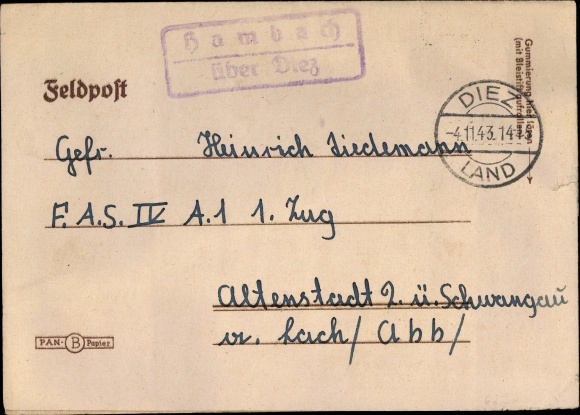 Hambach
über Diez
Feldpost
Gummierung hier lösen
(mit Bleistift aufrollen)
DIEZ
-4.11.43.14-15
LAND
Gefr. Heinrich Tiedemann
F.A.S. IV A.1 1. Zug
Altenstadt 2. ü. Schwangau
/ Abb/
PAN- B Papier.